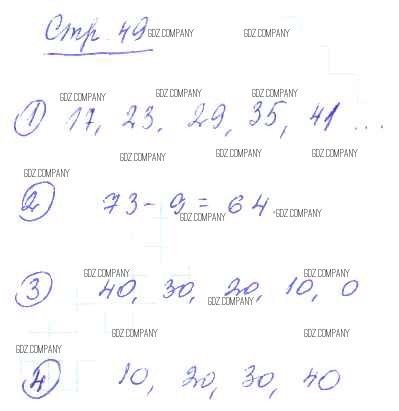 Стр. 49
GDZ.COMPANY GDZ.COMPANY
GDZ.COMPANY GDZ.COMPANY GDZ.COMPANY
1 17, 23, 29, 35, 41 ...
GDZ.COMPANY GDZ.COMPANY GDZ.COMPANY
GDZ.COMPANY
2 73 - 9 = 64.
GDZ.COMPANY GDZ.COMPANY
GDZ.COMPANY GDZ.COMPANY
3 40, 30, 20, 10, 0
GDZ.COMPANY
GDZ.COMPANY GDZ.COMPANY
GDZ.COMPANY
4 10, 20, 30, 40